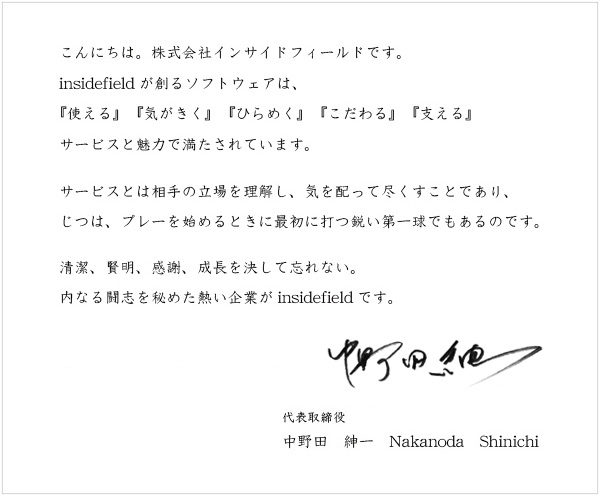 こんにちは。株式会社インサイドフィールドです。
insidefield が創るソフトウェアは、
『使える』『気がきく』『ひらめく』『こだわる』『支える』
サービスと魅力で満たされています。
サービスとは相手の立場を理解し、気を配って尽くすことであり、
じつは、プレーを始めるときに最初に打つ鋭い第一球でもあるのです。
清潔、賢明、感謝、成長を決して忘れない。
内なる闘志を秘めた熱い企業が insidefield です。
中野田紳一
代表取締役
中野田　紳一　Nakanoda　Shinichi